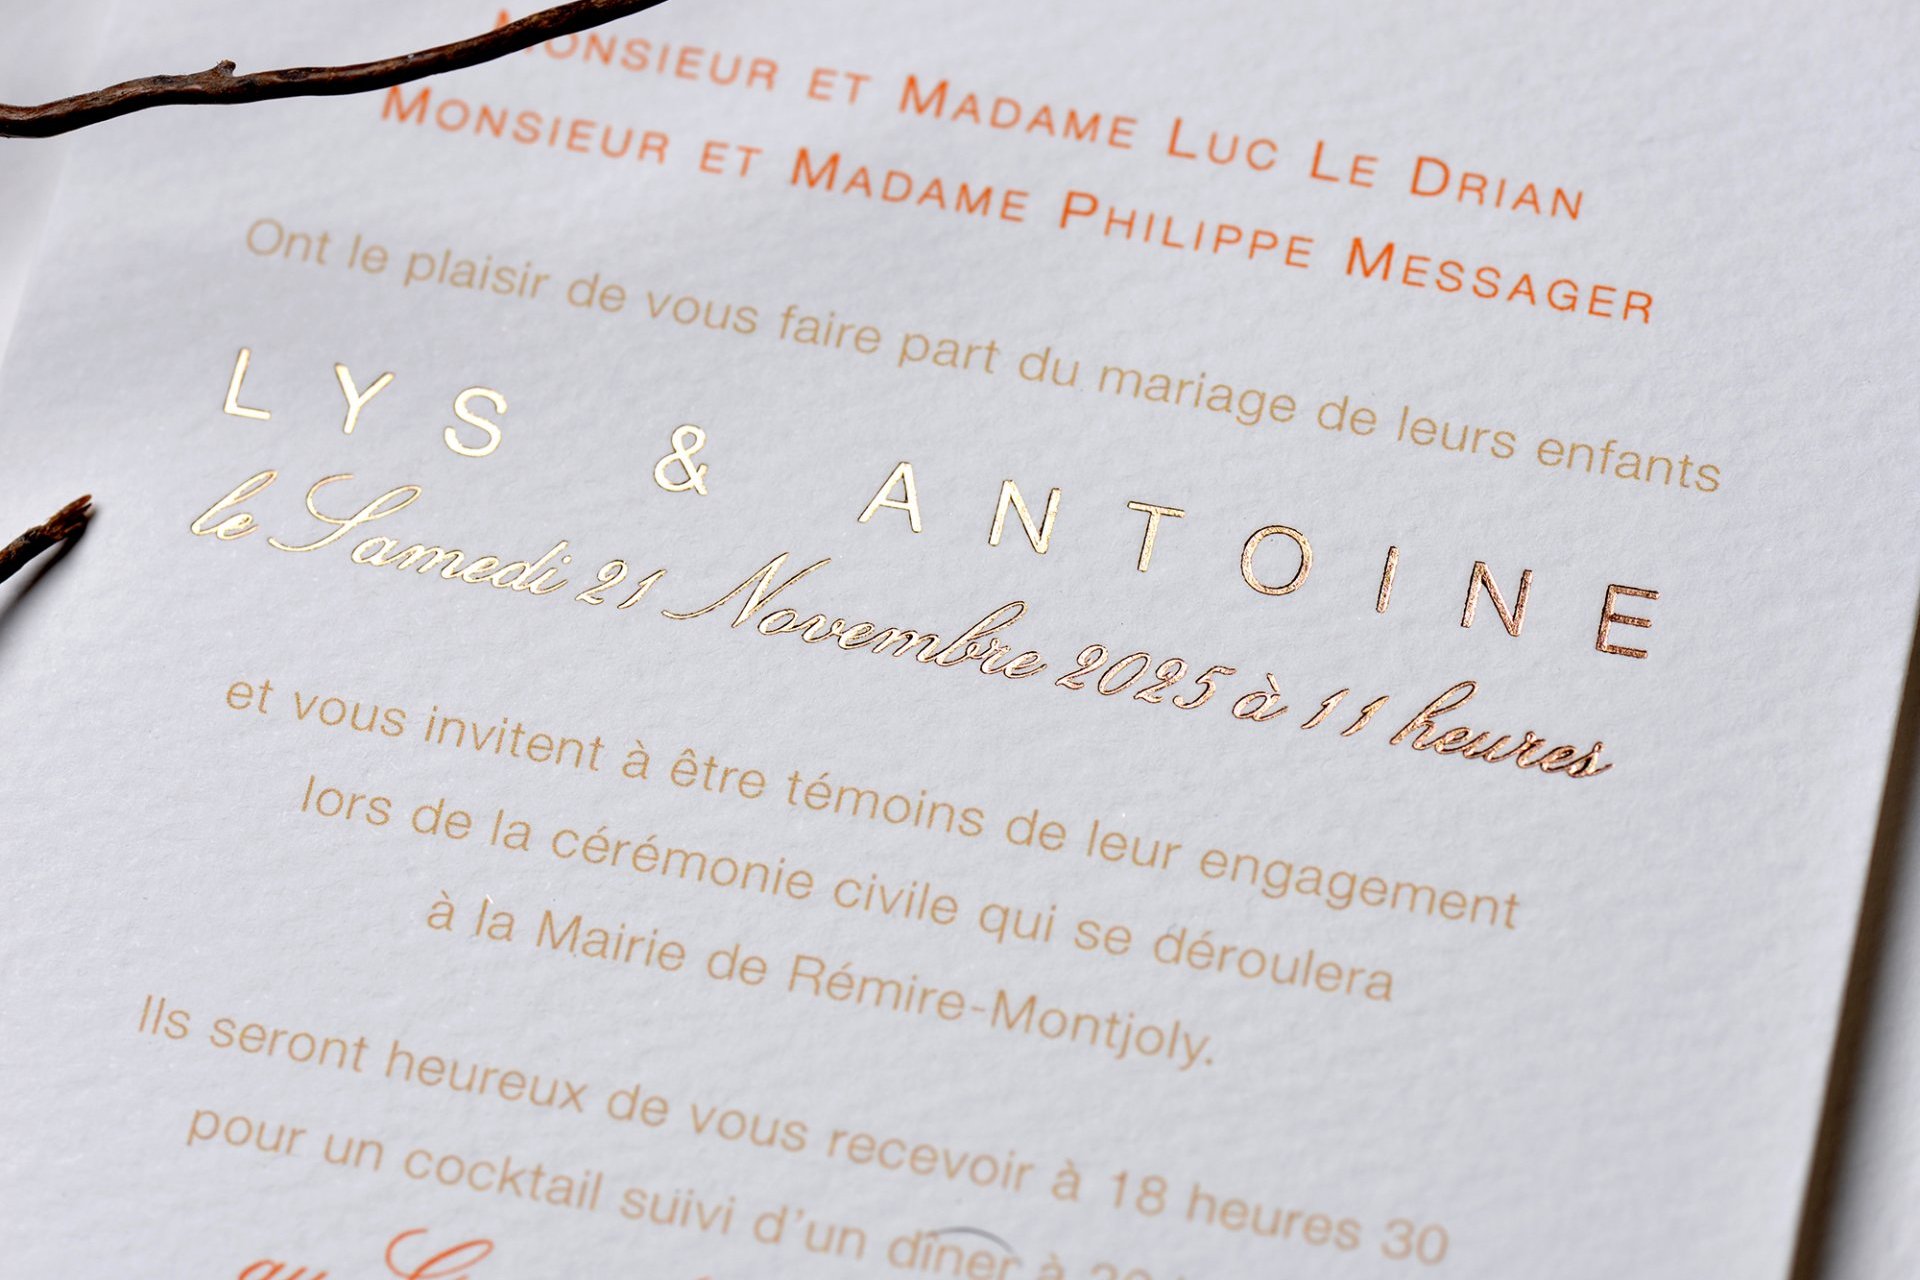 Monsieur et Madame Luc Le Drian
Monsieur et Madame Philippe Messager
Ont le plaisir de vous faire part du mariage de leurs enfants
LYS & ANTOINE
le Samedi 21 Novembre 2025 à 11 heures
et vous invitent à être témoins de leur engagement
lors de la cérémonie civile qui se déroulera
à la Mairie de Rémire-Montjoly.
Ils seront heureux de vous recevoir à 18 heures 30
pour un cocktail suivi d'un dîner à
au